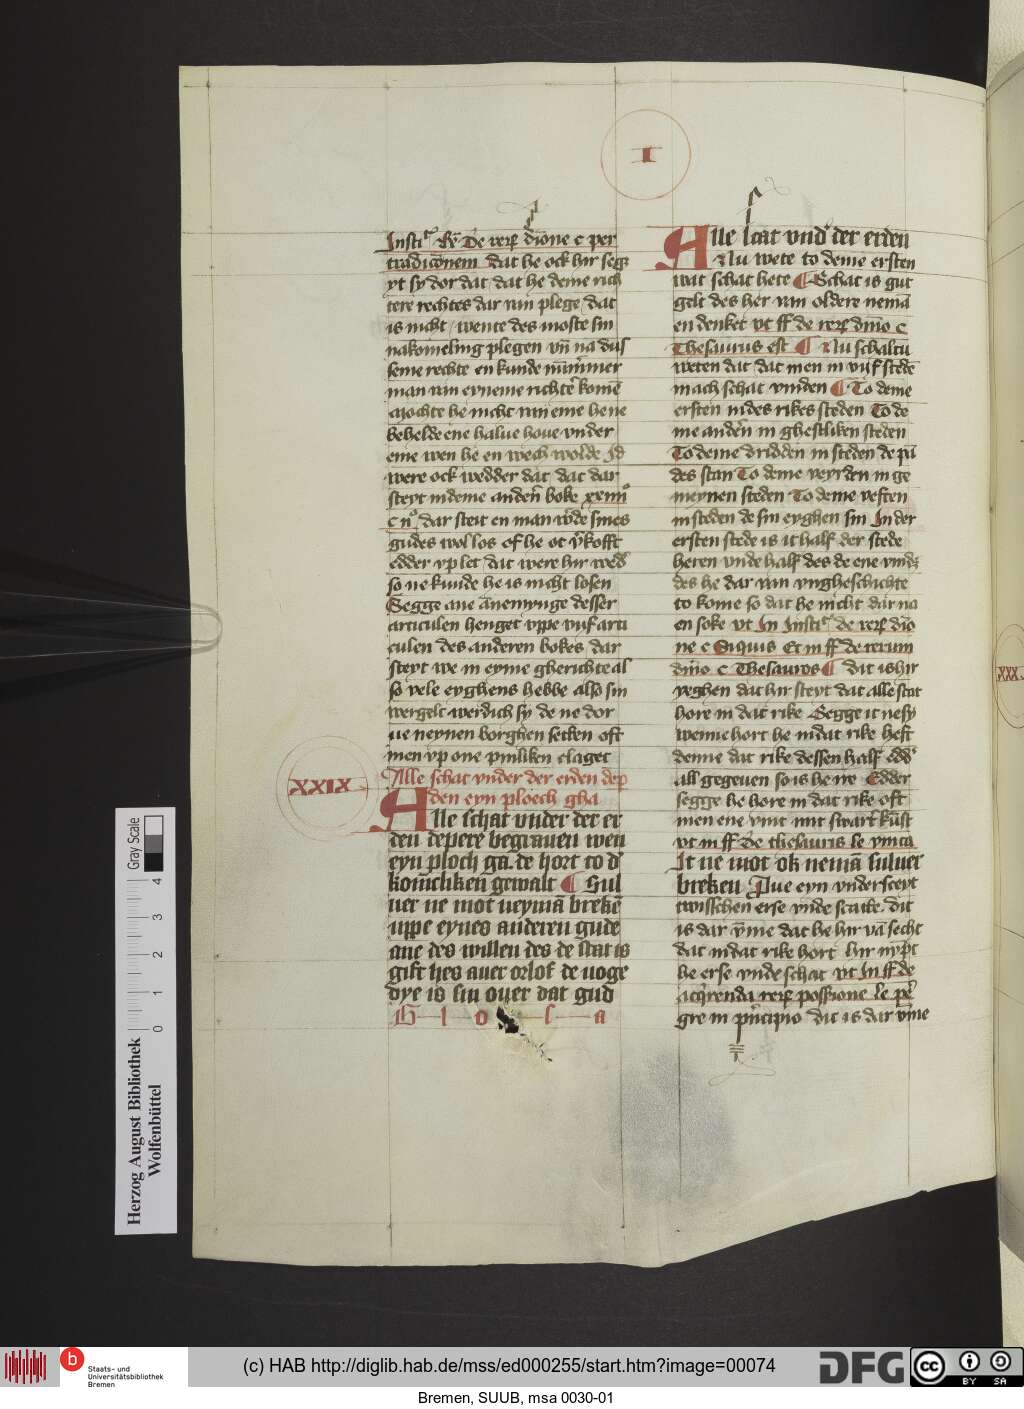 I
Insti͛ Re͞ De rerꝝ diōne c per
tradicōnem dat he ock hir segt
yt sy dor dat dat he deme rich
tere rechtes dar van plege dat
is nicht wente des moste sin
nakomeling plegen vn̄ na dus
seme rechte en kunde nūmmer
man van eyneme richter komē
Mochte he nicht van eme hene
behelde ene halue houe vnder
eme wen he en wech wolde Id
were ock wedder dat dat dar
steyt in deme andern̄ boke xxiiijº
c ijº dar steit en man w̄de sines
gudes wol los of he ot v̄kofft
edder vp let dat were hir wedd̾
so ne kunde he is nicht losen
Segge ane anenynge desser
articulen henget vppe vnf arti
culen des anderen bokes dar
steyt we in eyme gherichte al
so vele eyghens hebbe also sin
wergelt werdich sy de ne dor
ue neynen borghen setten oft
men vp one pinliken claget
Alle schat vnder der erden dep
den eyn ploech gha
XXIX
Alle schat vnder der er
den depere begrauen wen
eyn ploch ga de hort to d̾
konīchliken̄ gewalt ¶ Sul
uer ne mot neymā brekē
vppe eynes anderen gude
ane des willen des de stat is
gift hes auer orlof de voge
dye is sin ouer dat gud
G l o s a
Alle scat vnd̾ der erden
Nu wete to deme ersten
wat schat hete ¶ Schat is gut
gelt des her van oldere nemā
en denket vt ff de rerꝝ dīnio c
Thesaurus est ¶ Nu schaltu
weten dat dat men in vijf stedē
mach schat vinden ¶ To deme
ersten in des rikes steden To de
me anden̄ in ghestliken steden
To deme dridden in steden de pā
des stan To deme veyrden in ge
meynen steden To deme veften
in steden de sin eyghen sin In der
ersten stede is it half der stede
heren vnde half des de ene vindꝫ
des he dar van vngheschichte
to kome so dat he nicht dar na
en soke vt In Insti͛ de rerꝝ diīo
ne c Siquis Et in ff de rerum
dm̄io c Thesauros ¶ dit is hir
yeghen dat hir steyt dat alle scat
hore in dat rike Segge it ne sy
wenne hort he in dat rike heft
denne dat rike dessen half edd̾
all gegeuen so is he ire Edder
segge he hore in dat rike oft
men ene vint mit swarter kūst
vt in ff de thesauris le vnica
It ne mot ok nemā suluer
breken Aue eyn vndersceyt
twisschen erse vnde scatte dit
is dar v̄me dat he hir vā secht
dat in dat rike hort hir nyp̄t
he erse vnde schat vt In ff de
acq̄renda rerꝝ possione le pe᷑
gre in pn̄cipio dit is dar v̄me
XXX
Gray Scale
0 1 2 3 4
Herzog August Bibliothek
Wolfenbüttel
b
Staats- und
Universitätsbibliothek
Bremen
(c) HAB http://diglib.hab.de/mss/ed000255/start.htm?image=00074
DFG
cc
BY SA
Bremen, SUUB, msa 0030-01